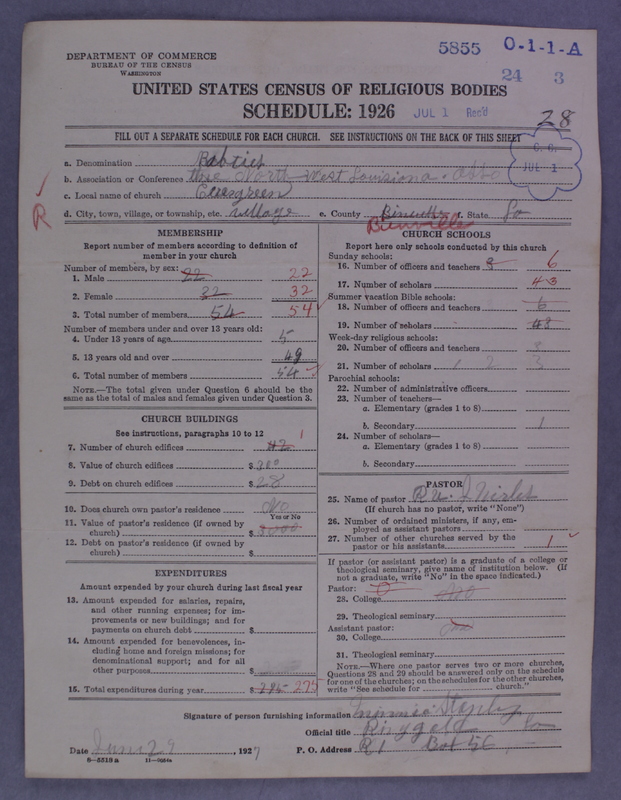 5855 O-1-1-A
DEPARTMENT OF COMMERCE
BUREAU OF THE CENSUS
WASHINGTON
24 3
UNITED STATES CENSUS OF RELIGIOUS BODIES
SCHEDULE: 1926 JUL 1 Rec'd
28
FILL OUT A SEPARATE SCHEDULE FOR EACH CHURCH. SEE INSTRUCTIONS ON THE BACK OF THIS SHEET
JUL 1
a. Denomination Babtist
b. Association or Conference the North West Louisiana
c. Local name of church Evergreen
R
d. City, town, village, or township, etc. village e. County Bienville f. State La
Bienville
MEMBERSHIP
Report number of members according to definition of member in your church
Number of members, by sex:
1. Male 22 22
2. Female 32 32
3. Total number of members 54 54
Number of members under and over 13 years old:
4. Under 13 years of age 5
5. 13 years old and over 49
6. Total number of members 54
NOTE.—The total given under Question 6 should be the same as the total of males and females given under Question 3.
CHURCH BUILDINGS
See instructions, paragraphs 10 to 12
7. Number of church edifices 1
8. Value of church edifices $ 300
9. Debt on church edifices $ 28
10. Does church own pastor's residence No
Yes or No
11. Value of pastor's residence (if owned by church) $
12. Debt on pastor's residence (if owned by church) $
EXPENDITURES
Amount expended by your church during last fiscal year
13. Amount expended for salaries, repairs, and other running expenses; for improvements or new buildings; and for payments on church debt $
14. Amount expended for benevolences, including home and foreign missions; for denominational support; and for all other purposes $
15. Total expenditures during year $ 275 275
CHURCH SCHOOLS
Report here only schools conducted by this church
Sunday schools:
16. Number of officers and teachers 8 6
17. Number of scholars 43
Summer vacation Bible schools:
18. Number of officers and teachers 6
19. Number of scholars 43
Week-day religious schools:
20. Number of officers and teachers 3
21. Number of scholars 1 2 3
Parochial schools:
22. Number of administrative officers
23. Number of teachers—
a. Elementary (grades 1 to 8)
b. Secondary 1
24. Number of scholars—
a. Elementary (grades 1 to 8)
b. Secondary
PASTOR
25. Name of pastor
(If church has no pastor, write "None")
26. Number of ordained ministers, if any, employed as assistant pastors
27. Number of other churches served by the pastor or his assistants 1
If pastor (or assistant pastor) is a graduate of a college or theological seminary, give name of institution below. (If not a graduate, write "No" in the space indicated.)
Pastor:
28. College No
29. Theological seminary
Assistant pastor:
30. College
31. Theological seminary
NOTE.—Where one pastor serves two or more churches, Questions 28 and 29 should be answered only on the schedule for one of the churches; on the schedules for the other churches, write "See schedule for ______ church."
Signature of person furnishing information
Official title Ringgold La
Date June 29, 1927 P. O. Address R1 Box
8—5513a 11—8054a